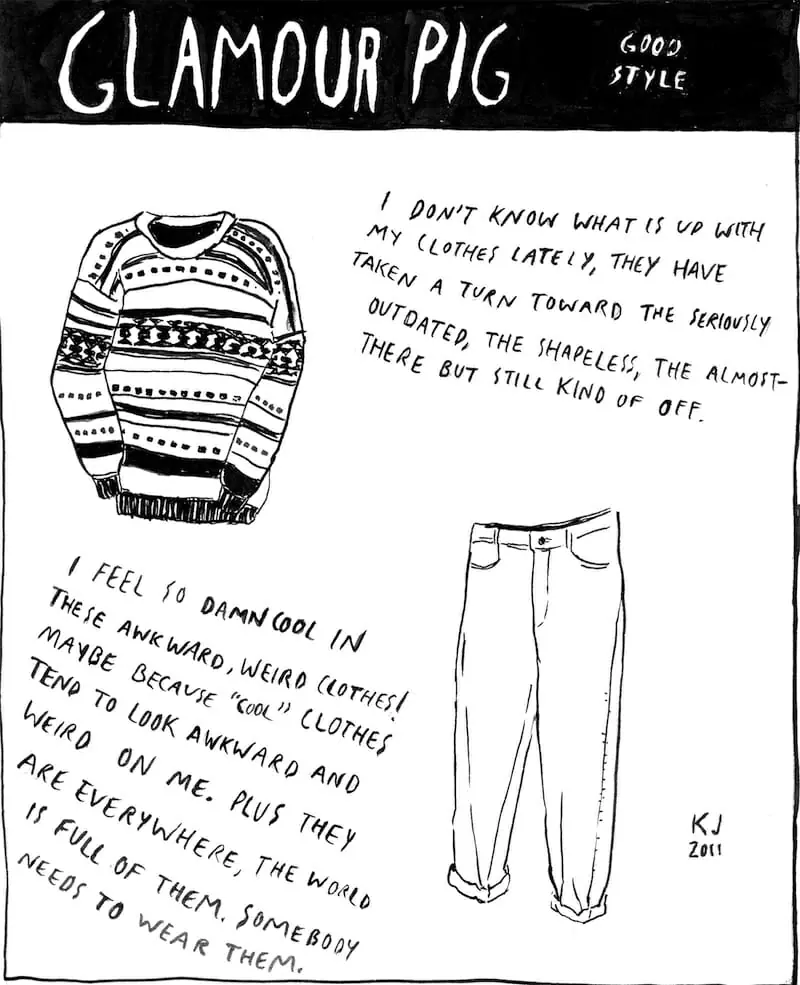 GLAMOUR PIG
GOOD
STYLE
I DON'T KNOW WHAT IS UP WITH
MY CLOTHES LATELY, THEY HAVE
TAKEN A TURN TOWARD THE SERIOUSLY
OUTDATED, THE SHAPELESS, THE ALMOST-
THERE BUT STILL KIND OF OFF.
I FEEL SO DAMN COOL IN
THESE AWKWARD, WEIRD CLOTHES!
MAYBE BECAUSE "COOL" CLOTHES
TEND TO LOOK AWKWARD AND
WEIRD ON ME. PLUS THEY
ARE EVERYWHERE, THE WORLD
IS FULL OF THEM. SOMEBODY
NEEDS TO WEAR THEM.
KJ
2011